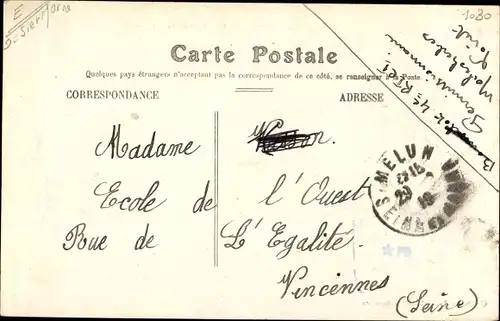 E
1030
Carte Postale
Quelques pays étrangers n'acceptant pas la correspondance de ce côté, se renseigner à la Poste.
CORRESPONDANCE
ADRESSE
Madame
Ecole de l'Ouest
Rue de L'Egalité
Vincennes
(Seine)
MELUN
SEINE